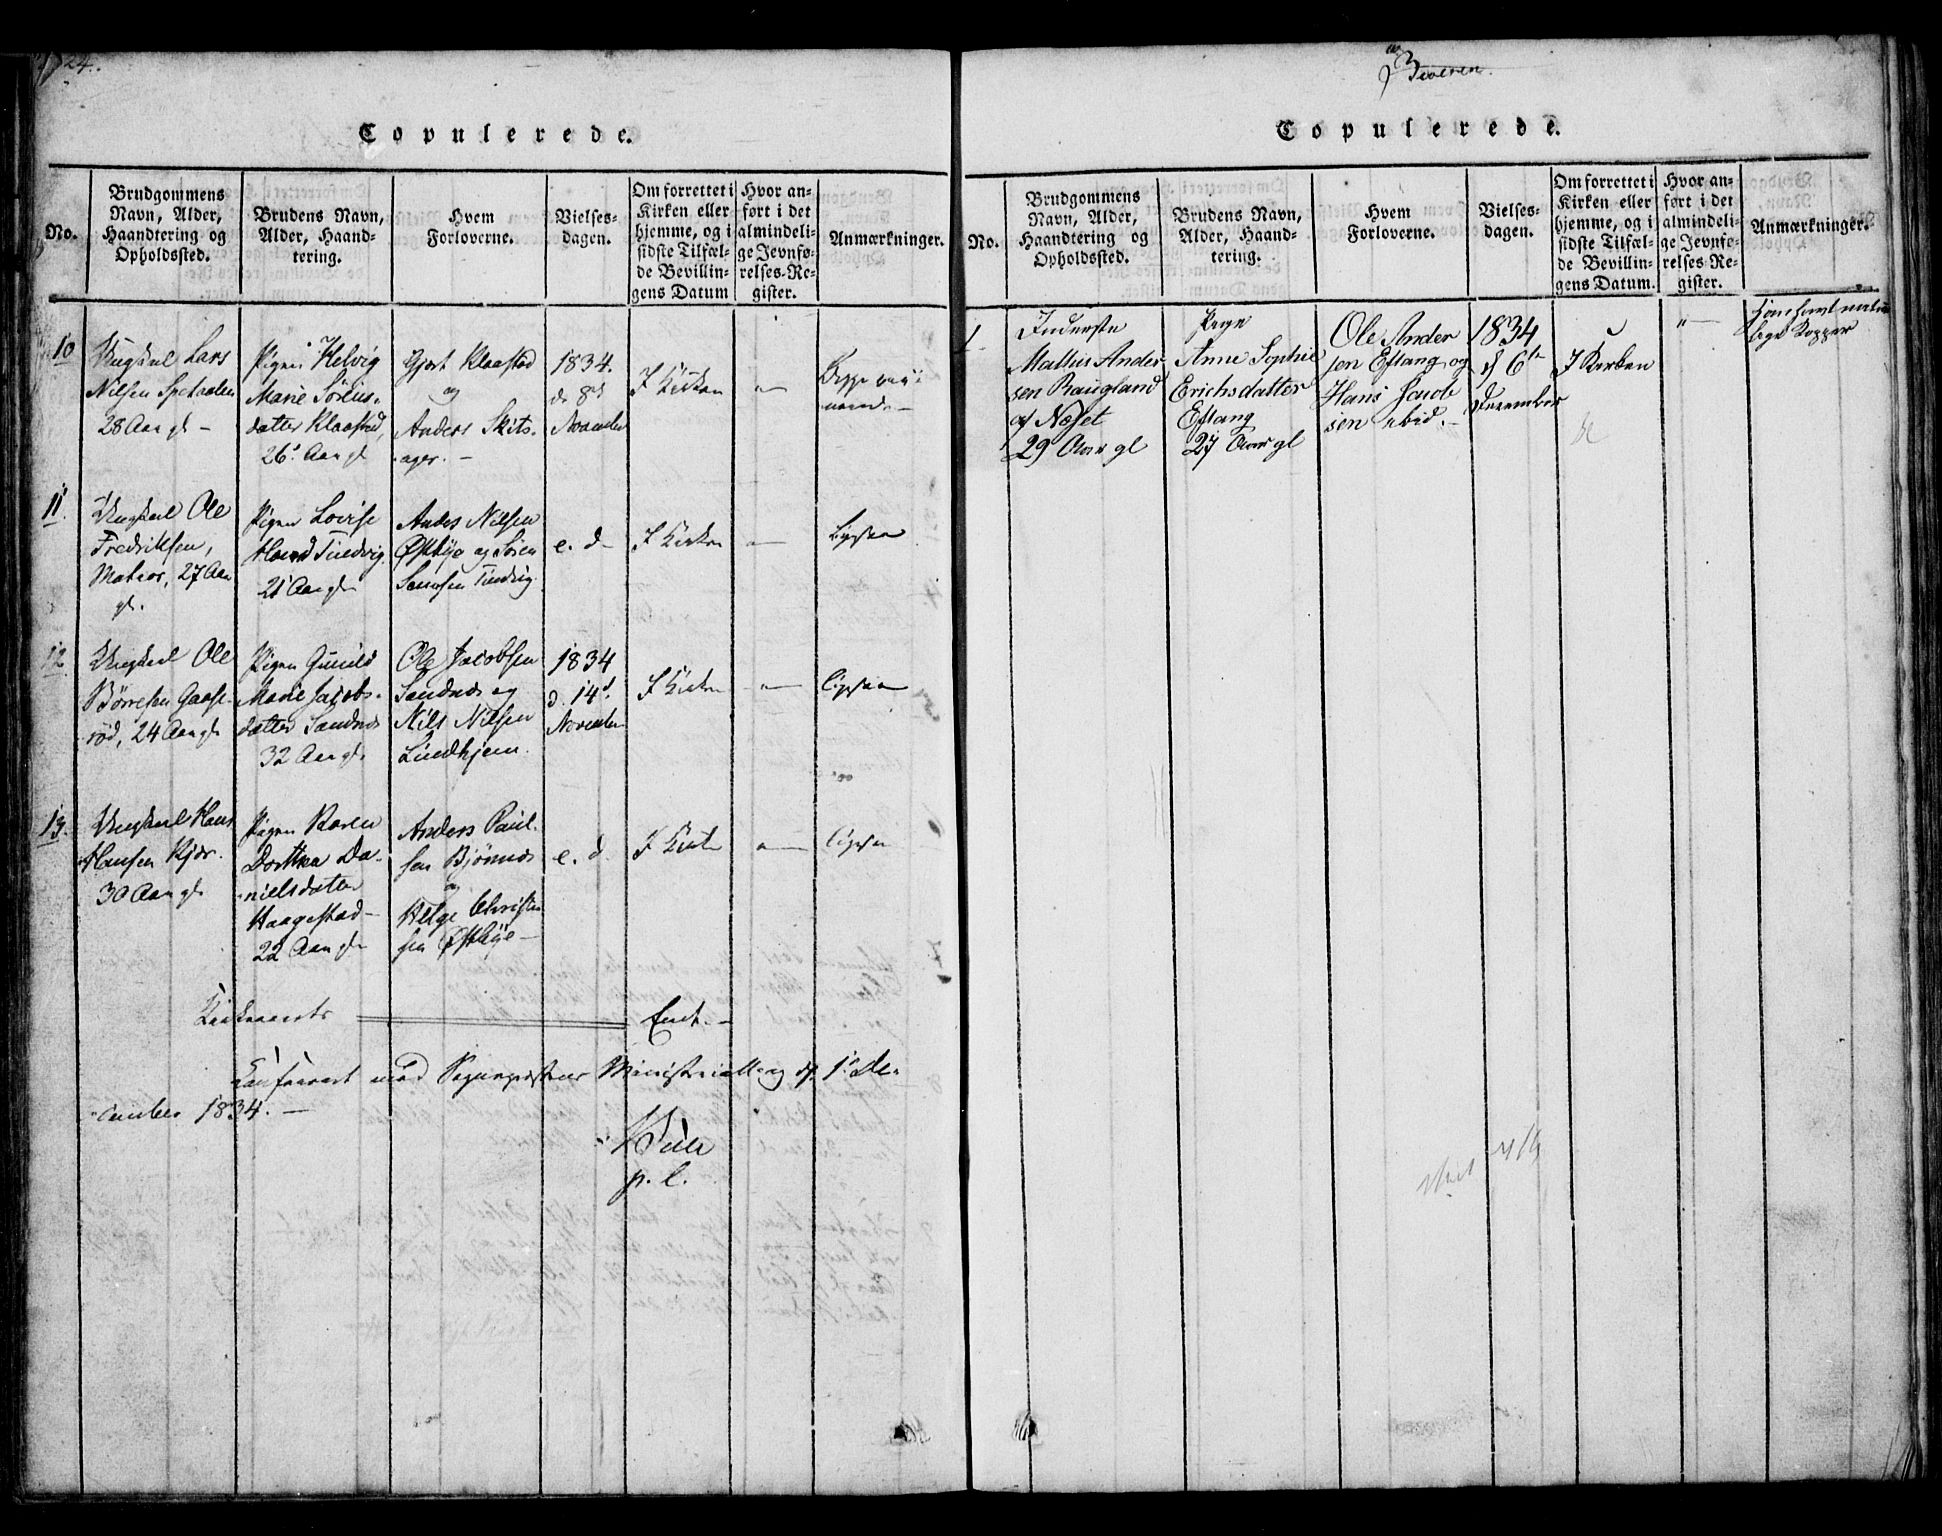 24.
Copulerede.
No.
Brudgommens
Navn, Alder,
Haandtering og
Opholdssted.
Brudens Navn,
Alder, Haand-
tering.
Hvem
Forloverne.
Vielses-
dagen.
Om forrettet i
Kirken eller
hjemme, og i
sidste Tilfæl-
de Bevillin-
gens Datum
Hvor an-
ført i det
almindeli-
ge Jevnfø-
relses-Re-
gister.
Anmærkninger.
10
Ungkarl Lars
Nilsen
28 Aar gl.
Pigen Helvig
Marie Sørens-
datter Klaastad,
26 Aar gl
Gjert Klaastad
og
Anders Skits-
ager. -
1834.
d. 8d
November
I Kirken
11.
Ungkarl Ole
Fredriksen,
Matros, 27 Aar
gl.
Pigen Lovise
Tindvig
21 Aar gl.
Anders Nilsen
Østbye og Søren
Tindvig.
e. d.
I Kirken
Ligesaa
12
Ungkarl Ole
Børresen Gaase-
rød, 24 Aar gl.
Pigen Gunild
Marie Jacobs-
datter Sandnæs
32 Aar gl.
Ole Jacobsen
Sandnæs og
Nils Nilsen
Lindhjem.
1834
d. 14d.
November
I Kirken
Ligesaa
13.
Ungkarl Hans
Hansen Kjær.
30 Aar gl.
Pigen Karen
Dorthea Da-
nielsdatter
Haagestad-
22 Aar gl.
Anders Paul-
sen Bjønnes
og
Helge Christen-
sen Østbye-
e. d.
I Kirken
Ligesaa
Kirkeaarets Ent.-
Conferert med Sogneprestens Ministerialbog d. 1. De-
cember 1834. -
p. l.
Copulerede.
No.
Brudgommens
Navn, Alder,
Haandtering og
Opholdssted.
Brudens Navn,
Alder, Haand-
tering.
Hvem
Forloverne.
Vielses-
dagen.
Om forrettet i
Kirken eller
hjemme, og i
sidste Tilfæl-
de Bevillin-
gens Datum.
Hvor an-
ført i det
almindeli-
ge Jevnfø-
relses-Re-
gister.
Anmærkninger.
1
Inderste
Mathis Ander
sen Raugland
af Næset
29 Aar gl
Pige
Anne Sophie
Erichsdatter
Eftang
27 Aar gl
Ole Ander
sen Eftang og
Hans Jacob
sen ibid.
1834
d 6te
December
I Kirken
Han havt natur
lige Kopper